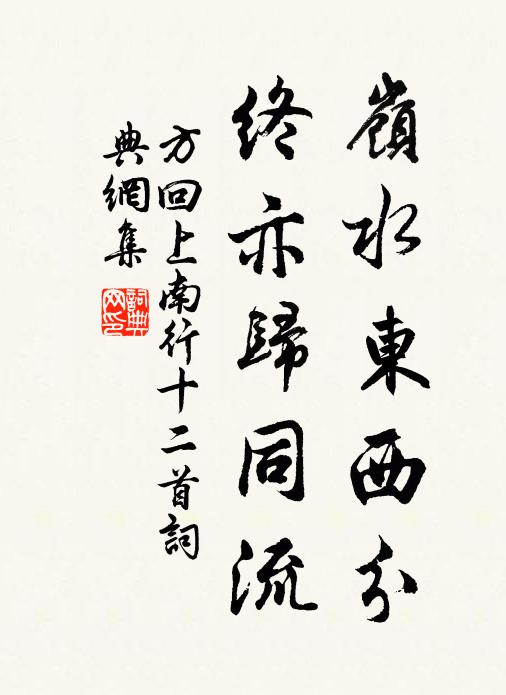 嶺水東西分
終亦歸同流
方回上南行十二首詞
典網集
詞典
网印